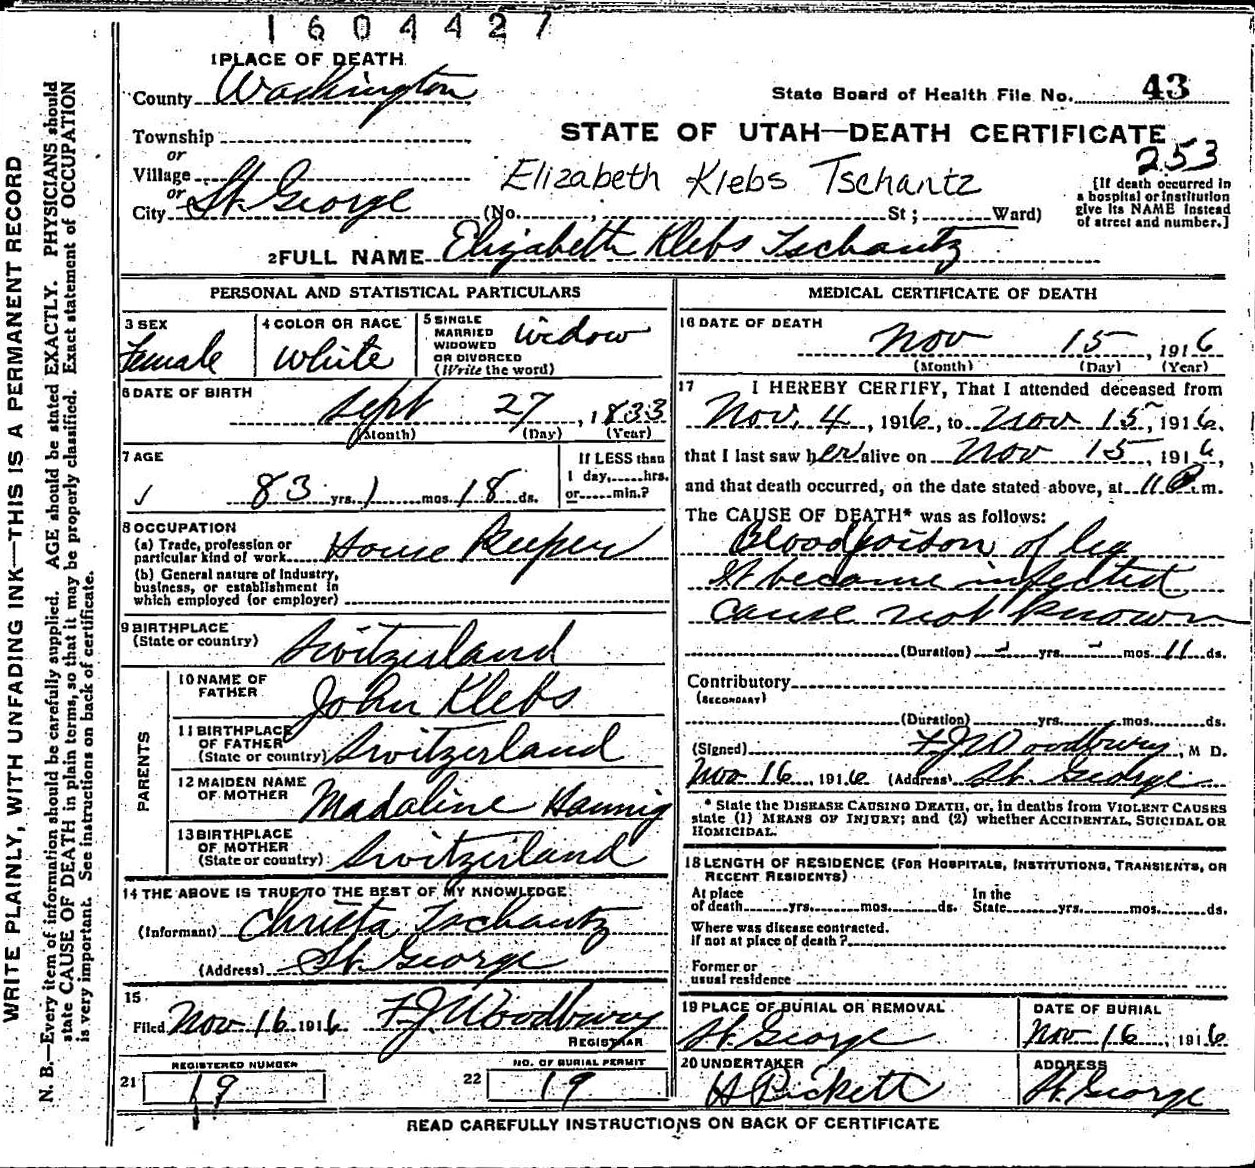 1604427
1 PLACE OF DEATH
County Washington
State Board of Health File No. 43
Township
or
Village
or
City St. George
STATE OF UTAH—DEATH CERTIFICATE
253
Elizabeth Klebs Tschantz
(No. , St ; Ward)
[If death occurred in
a hospital or institution
give its NAME instead
of street and number.]
2 FULL NAME Elizabeth Klebs Tschantz
PERSONAL AND STATISTICAL PARTICULARS
3 SEX
Female
4 COLOR OR RACE
White
5 SINGLE
MARRIED
WIDOWED
OR DIVORCED
(Write the word)
Widow
6 DATE OF BIRTH
Sept 27, 1833
(Month) (Day) (Year)
7 AGE
83 yrs. 1 mos. 18 ds.
If LESS than
1 day, hrs.
or min.?
8 OCCUPATION
(a) Trade, profession or
particular kind of work House Keeper
(b) General nature of industry,
business, or establishment in
which employed (or employer)
9 BIRTHPLACE
(State or country) Switzerland
PARENTS
10 NAME OF
FATHER John Klebs
11 BIRTHPLACE
OF FATHER
(State or country) Switzerland
12 MAIDEN NAME
OF MOTHER Madaline Hannig
13 BIRTHPLACE
OF MOTHER
(State or country) Switzerland
14 THE ABOVE IS TRUE TO THE BEST OF MY KNOWLEDGE
(Informant) Christa Tschantz
(Address) St. George
15
Filed Nov 16 1916 F J Woodbury
REGISTRAR
REGISTERED NUMBER
21 19
NO. OF BURIAL PERMIT
22 19
MEDICAL CERTIFICATE OF DEATH
16 DATE OF DEATH
Nov 15, 1916
(Month) (Day) (Year)
17 I HEREBY CERTIFY, That I attended deceased from
Nov. 4, 1916, to Nov 15, 1916,
that I last saw her alive on Nov 15, 1916,
and that death occurred, on the date stated above, at 11 P.m.
The CAUSE OF DEATH* was as follows:
Blood poison of leg
It became infected
cause not known
(Duration) - yrs. - mos. 11 ds.
Contributory
(SECONDARY)
(Duration) yrs. mos. ds.
(Signed) F J Woodbury, M D.
Nov 16, 1916 (Address) St. George
* State the DISEASE CAUSING DEATH, or, in deaths from VIOLENT CAUSES
state (1) MEANS OF INJURY; and (2) whether ACCIDENTAL, SUICIDAL OR
HOMICIDAL.
18 LENGTH OF RESIDENCE (FOR HOSPITALS, INSTITUTIONS, TRANSIENTS, OR
RECENT RESIDENTS)
At place
of death yrs. mos. ds.
In the
State yrs. mos. ds.
Where was disease contracted,
if not at place of death?
Former or
usual residence
19 PLACE OF BURIAL OR REMOVAL
St. George
DATE OF BURIAL
Nov 16, 1916
20 UNDERTAKER
H Pickett
ADDRESS
St. George
READ CAREFULLY INSTRUCTIONS ON BACK OF CERTIFICATE
WRITE PLAINLY, WITH UNFADING INK—THIS IS A PERMANENT RECORD
N. B.—Every item of information should be carefully supplied. AGE should be stated EXACTLY. PHYSICIANS should
state CAUSE OF DEATH in plain terms, so that it may be properly classified. Exact statement of OCCUPATION
is very important. See instructions on back of certificate.